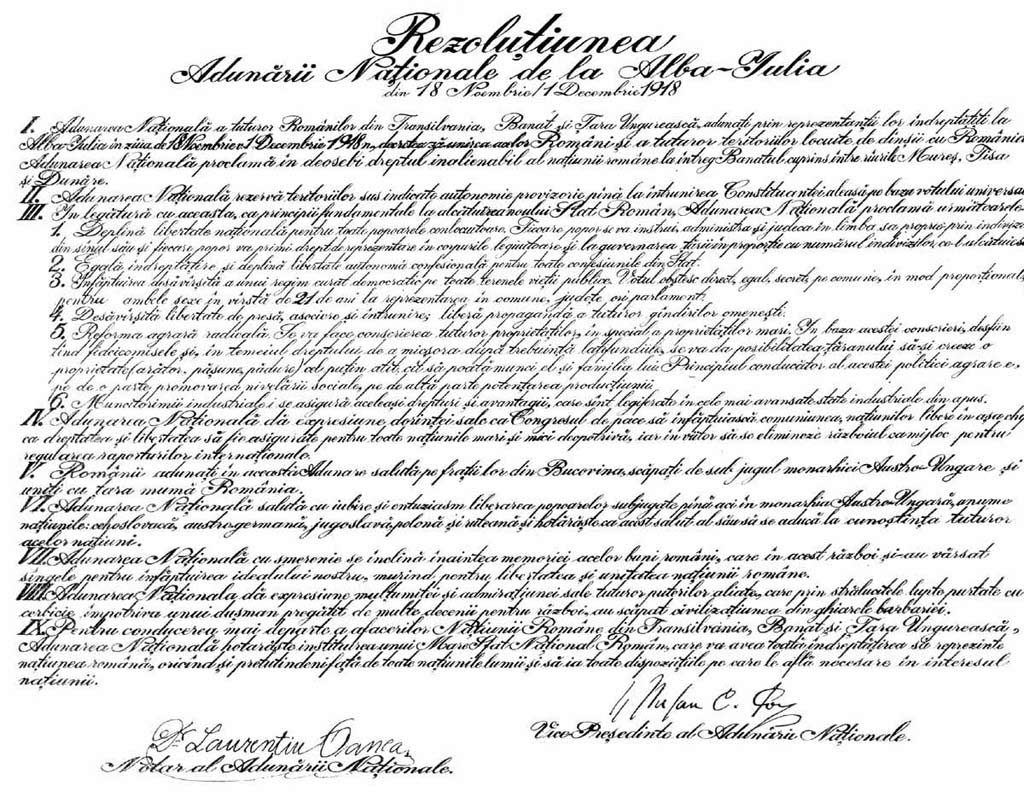 Rezoluțiunea
Adunării Naționale de la Alba-Iulia
din 18 Noembrie/1 Decembrie 1918
I. Adunarea Națională a tuturor Românilor din Transilvania, Banat și Țara Ungurească, adunați prin reprezentanții lor îndreptățiți la
Alba-Iulia în ziua de 18 Noembrie/1 Decembrie 1918, decretează unirea acelor Români și a tuturor teritoriilor locuite de dînșii cu România.
Adunarea Națională proclamă îndeosebi dreptul inalienabil al națiunii române la întreg Banatul cuprins între rîurile Mureș, Tisa
și Dunăre.
II. Adunarea Națională rezervă teritoriilor sus indicate autonomie provizorie pînă la întrunirea Constituantei aleasă pe baza votului universa
III. În legătură cu aceasta, ca principii fundamentale la alcătuirea noului Stat Român, Adunarea Națională proclamă următoarele
1. Deplină libertate națională pentru toate popoarele conlocuitoare. Fiecare popor se va instrui, administra și judeca în limba sa proprie prin indivizi
din sînul său și fiecare popor va primi drept de reprezentare în corpurile legiuitoare și la guvernarea țării în proporție cu numărul indivizilor ce-l alcătuiesc
2. Egală îndreptățire și deplină libertate autonomă confesională pentru toate confesiunile din Stat.
3. Înfăptuirea desăvîrșită a unui regim curat democratic pe toate terenele vieții publice. Votul obștesc direct, egal, secret, pe comune, în mod proporțional,
pentru ambele sexe în vîrstă de 21 de ani la reprezentarea în comune, județe ori parlament.
4. Desăvîrșită libertate de presă, asociere și întrunire; liberă propagandă a tuturor gîndirilor omenești.
5. Reforma agrară radicală. Se va face conscrierea tuturor proprietăților, în special a proprietăților mari. În baza acestei conscrieri, desfiin
țînd fideicomisele și, în temeiul dreptului de a micșora după trebuință latifundiile, se va da posibilitatea țăranului să-și creeze o
proprietate (arător, pășune, pădure) cel puțin atît cît să poată munci el și familia lui. Principiul conducător al acestei politici agrare e,
pe de o parte promovarea nivelării sociale, pe de altă parte potențarea producțiunii.
6. Muncitorimii industriale i se asigură aceleași drepturi și avantagii, care sînt legiferate în cele mai avansate state industriale din apus.
IV. Adunarea Națională dă expresiune dorinței sale ca Congresul de pace să înfăptuiască comuniunea națiunilor libere în așa chip
ca dreptatea și libertatea să fie asigurate pentru toate națiunile mari și mici deopotrivă, iar în viitor să se elimineze războiul ca mijloc pentru
regularea raporturilor internaționale.
V. Românii adunați în această Adunare salută pe frații lor din Bucovina, scăpați de sub jugul monarhiei Austro-Ungare și
uniți cu țara mumă România.
VI. Adunarea Națională salută cu iubire și entuziasm liberarea popoarelor subjugate pînă aci în monarhia Austro-Ungară, anume
națiunile: cehoslovacă, austrogermană, jugoslavă, polonă și ruteană și hotărăște ca acest salut al său să se aducă la cunoștința tuturor
acelor națiuni.
VII. Adunarea Națională cu smerenie se închină înaintea memoriei acelor buni români, care în acest război și-au vărsat
sîngele pentru înfăptuirea idealului nostru, murind pentru libertatea și unitatea națiunii române.
VIII. Adunarea Națională dă expresiune mulțumitei și admirațiunei sale tuturor puterilor aliate, care prin strălucitele lupte purtate cu
cerbicie împotriva unui dușman pregătit de multe decenii pentru război, au scăpat civilizațiunea din ghiarele barbariei.
IX. Pentru conducerea mai departe a afacerilor Națiunii Române din Transilvania, Banat și Țara Ungurească,
Adunarea Națională hotărăște instituirea unui Mare Sfat Național Român, care va avea toată îndreptățirea să reprezinte
națiunea română, oricînd și pretutindeni față de toate națiunile lumii și să ia toate dispozițiile pe care le află necesare în interesul
națiunii.
Dr. Laurențiu Oanea
Notar al Adunării Naționale.
Ștefan C. Pop
Vice Președinte al Adunării Naționale.